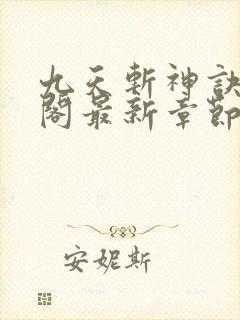 九天斬神訣
閣最新章節
安妮斯